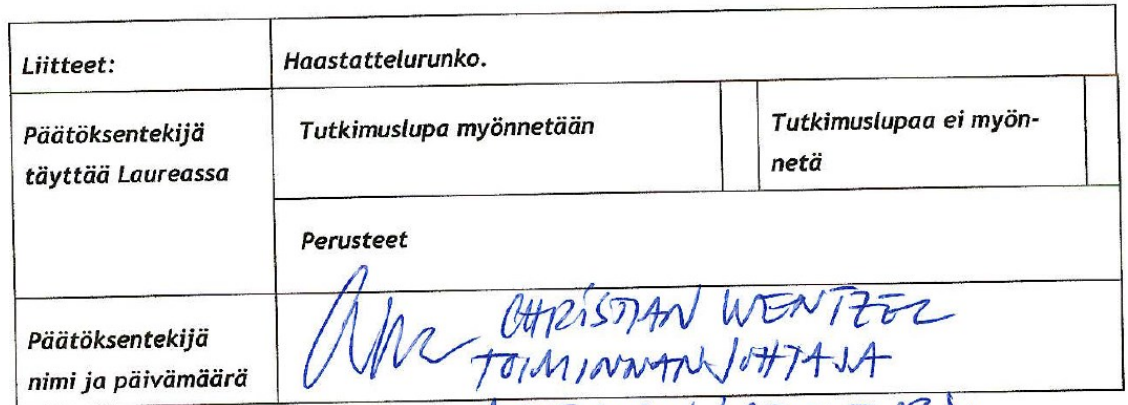 Liitteet:
Haastattelurunko.
Päätöksentekijä
täyttää Laureassa
Tutkimuslupa myönnetään
Tutkimuslupaa ei myön-
netä
Perusteet
Päätöksentekijä
nimi ja päivämäärä
CHRISTIAN WENTZEL
TOIMINNANJOHTAJA